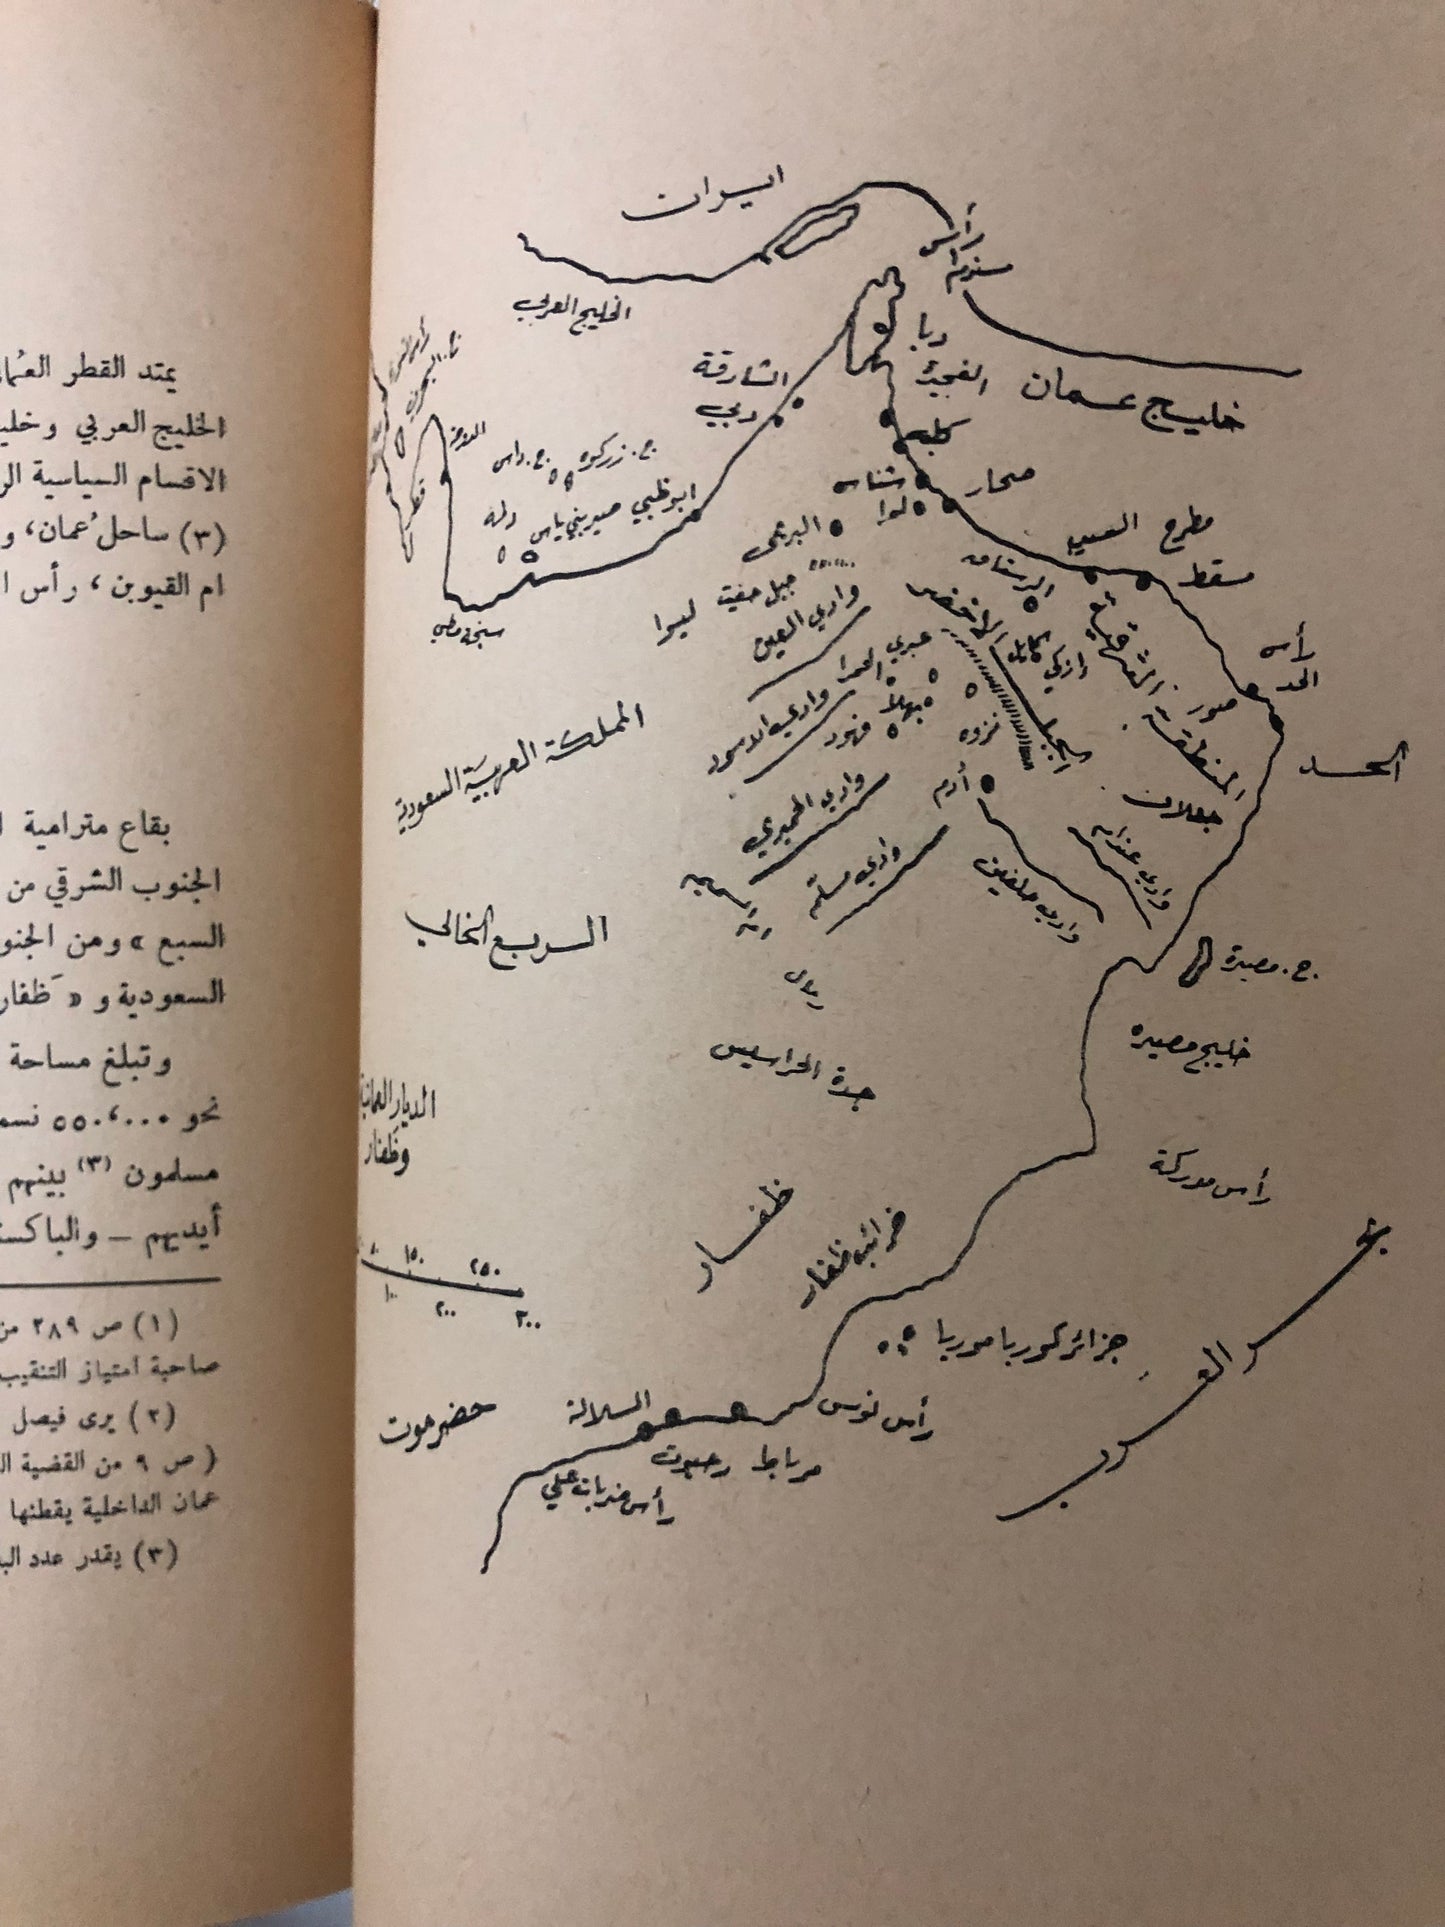 يمتد القطر
الخليج العربي وخليـ
الاقسام السياسية الر
(٣) ساحل عُمان، و
ام القيوين، رأس ا
بقاع مترامية ا
الجنوب الشرقي من
السبع » ومن الجنو
السعودية و « ظَفار
وتبلغ مساحة
نحو ٥٥٠،٠٠٠ نسمـ
مسلمون (٣) بينهم
أيديهم — والباكستـ
(١) ص ٢٨٩ من
صاحبة امتياز التنقيب
(٢) يرى فيصل
( ص ٩ من القضية الـ
عمان الداخلية يقطنها
(٣) يقدر عدد
ايران
رأس
مسندم
الخليج العربي
دبا
الفجيرة
خليج عمان
الشارقة
دبي
كلبه
ج. البحرين
الدوحة
قطر
ج. زركوه
ج. داس
شناص
صحار
لوا
ابوظبي
صير بني ياس
دلما
البريمي
مطرح
السيب
مسقط
الرستاق
جبل حفيت
ليوا
وادي العين
الجبل الاخضر
المنطقة الشرقية
رأس
الحد
صور
عبري
ازكي
بهلا
فهود
نزوه
وادي الاسود
المملكة العربية السعودية
الحد
أدم
جعلان
وادي عندام
وادي حلفين
وادي
وادي
الربع الخالي
ج. مصيرة
خليج مصيره
رمال
جدة الحراسيس
الديار العمانية
وظَفار
رأس مدركة
ظفار
خرائب ظفار
٨٠ ١٥٠ ٢٥٠
١٠٠ ٢٠٠ ٣٠٠
جزائر كوريا موريا
بحر العرب
حضرموت
السلالة
رأس نوس
مرباط
رأس ضربات علي